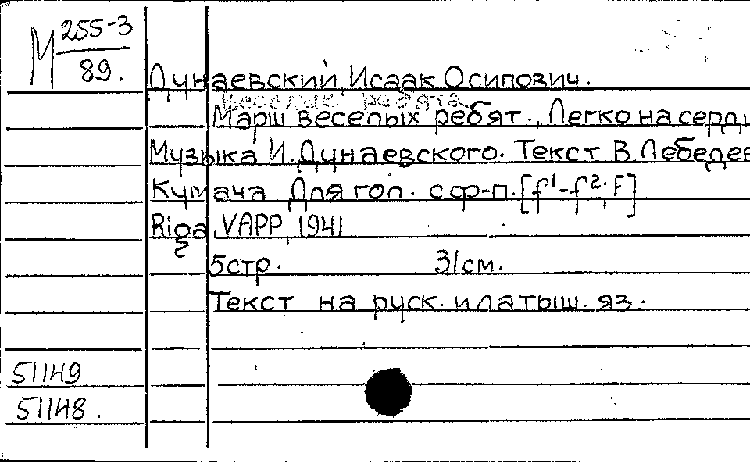 М 255-3
89.
Дунаевский, Исаак Осипович.
Веселые ребята
Марш веселых ребят., Легко на серд
Музыка И. Дунаевского. Текст В. Лебедев
Кумача Для гол. с ф-п. [f¹-f²; F]
Riga, VAPP, 1941
5 стр. 31 см.
Текст на руск. и латыш. яз.
51149
51148.